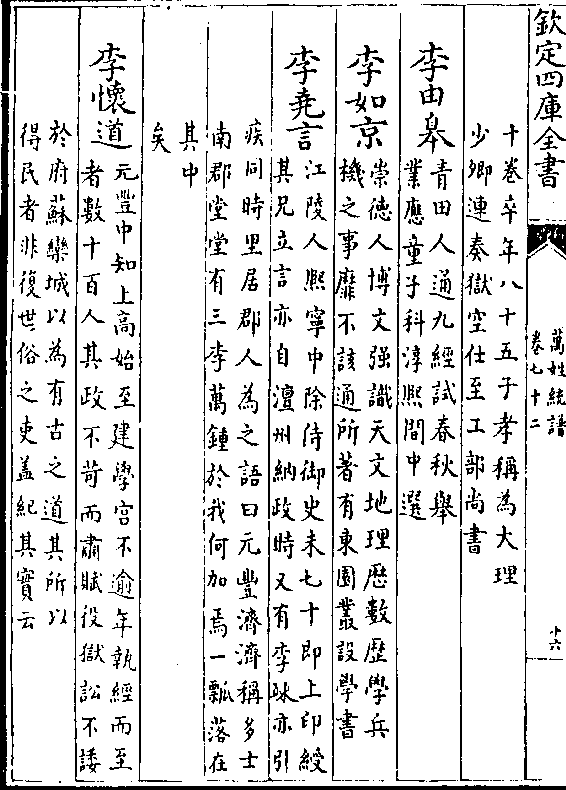 欽定四庫全書
萬姓統譜
卷七十二
十六
十卷卒年八十五子孝稱為大理
少卿連奏獄空仕至工部尚書
李由皐
青田人通九經試春秋舉
業應童子科淳熙間中選
李如京
崇德人博文强識天文地理歷數歷學兵
機之事靡不該通所著有東園叢設學書
李堯言
江陵人熙寧中除侍御史未七十即上印綬
其兄立言亦自澶州納政時又有李 亦引
疾同時里居郡人為之語曰元豐濟濟稱多士
南郡堂堂有三李萬鍾於我何加焉一瓢落在
其中
矣
李懷道
元豐中知上高始至建學宮不逾年執經而至
者數十百人其政不苛而肅賦役獄訟不諉
於府蘇欒城以為有古之道其所以
得民者非復世俗之吏蓋紀其實云